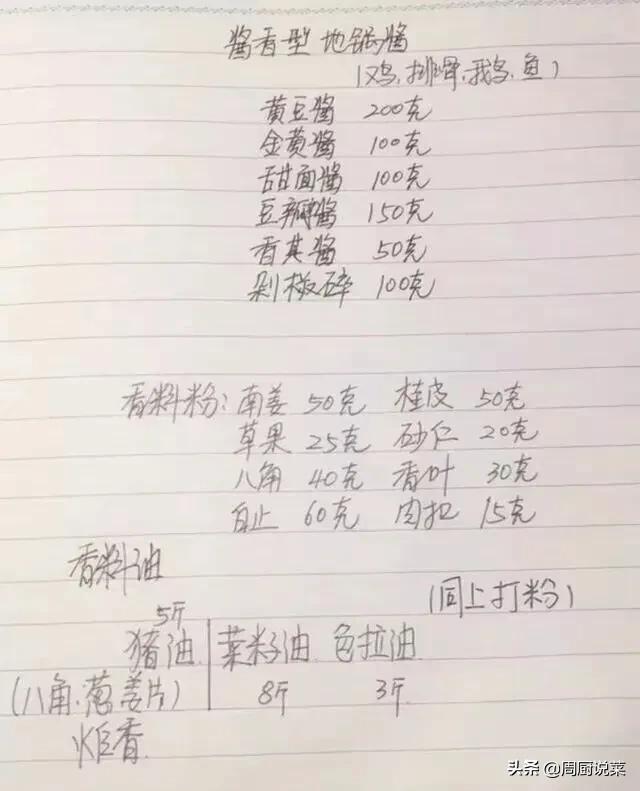 酱香型 地锅酱
(鸡,排骨,鹅,鱼)
黄豆酱 200克
金黄酱 100克
甜面酱 100克
豆瓣酱 150克
香其酱 50克
剁椒碎 100克
香料粉: 南姜 50克 桂皮 50克
草果 25克 砂仁 20克
八角 40克 香叶 30克
白止 60克 肉扣 15克
香料油
(同上打粉)
5斤
猪油 菜籽油 色拉油
(八角.葱姜片) 8斤 3斤
炬香
头条 @周厨说菜